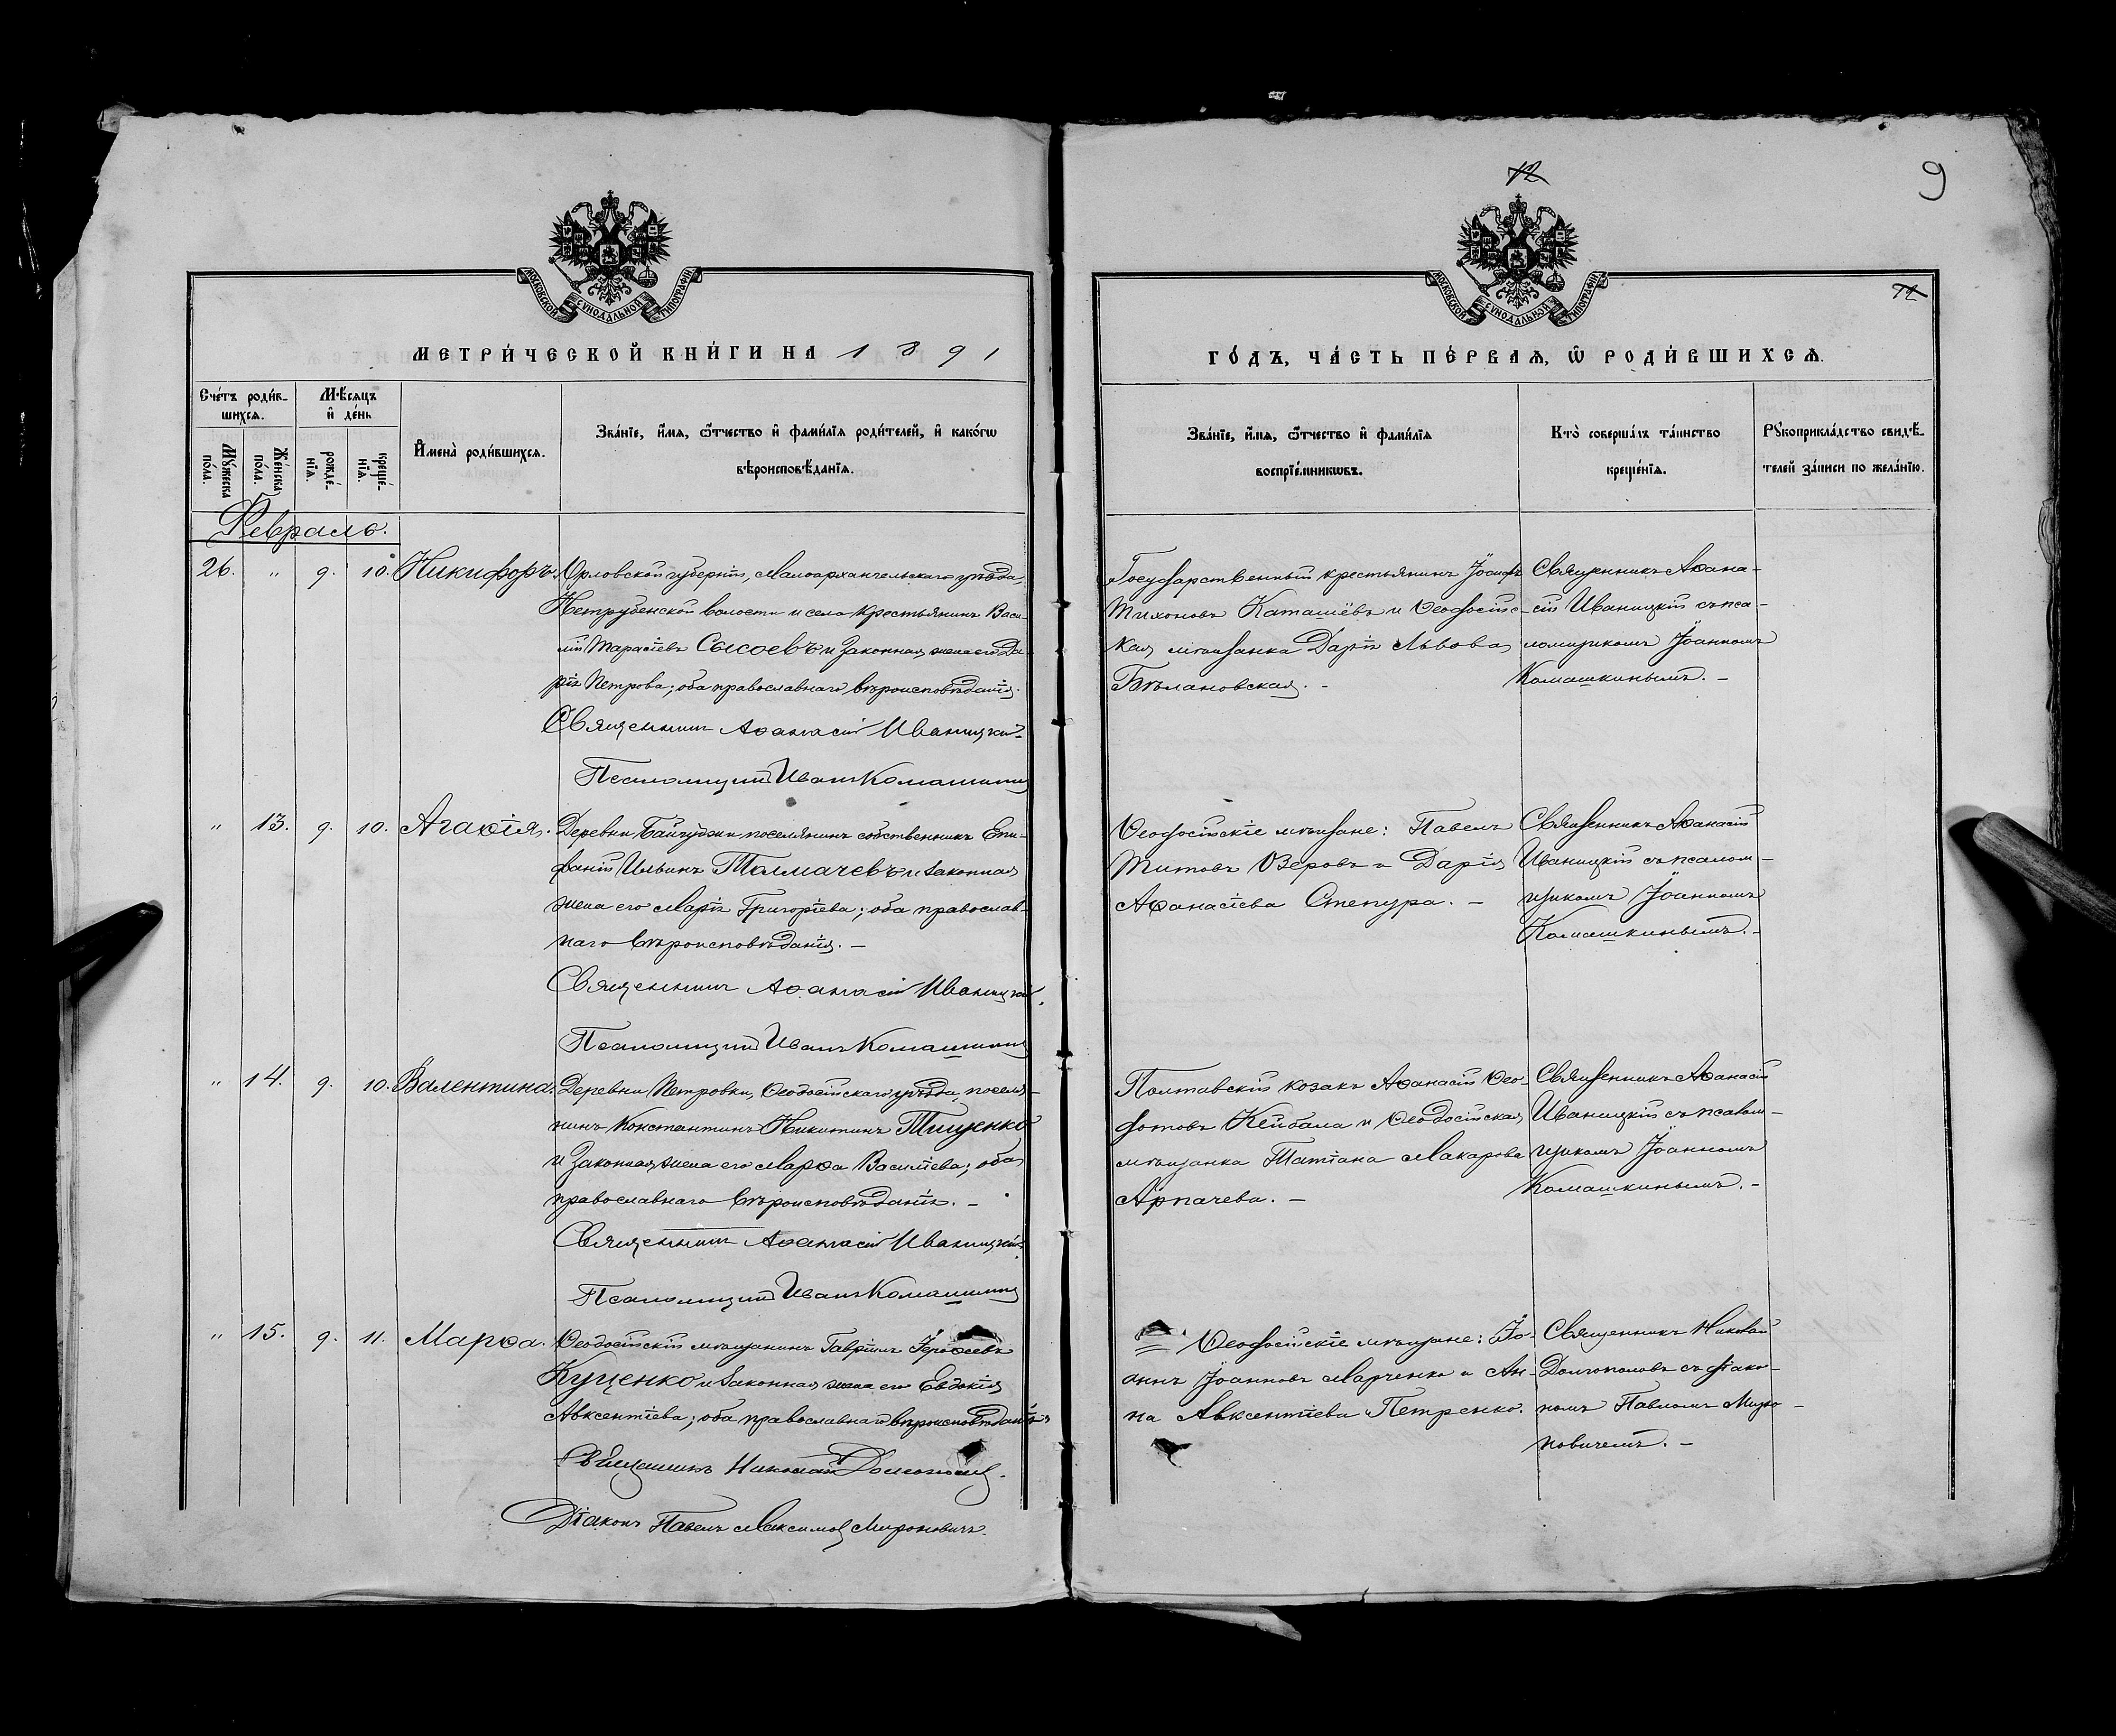 12
9
12
МОСКОВСКОЙ СѴНОДАЛЬНОЙ ТИПОГРАФІИ
МЕТРИ́ЧЕСКОЙ КНИ́ГИ НА 1891
Сче́тъ роди́в-
шихсѧ.
Мꙋ́жеска
по́ла.
Же́нска
по́ла.
Мѣ́сѧцъ
и҆ де́нь
рожде́-
нїѧ.
креще́-
нїѧ.
И҆мена̀ роди́вшихсѧ.
Зва́нїе, и҆́мѧ, ѿ́тчество и҆ фами́лїѧ роди́телей, и҆ како́гѡ
вѣроисповѣ́данїѧ.
Февраль.
26. " 9. 10. Никифоръ.
Орловской губерніи, Малоархангельскаго уѣзда,
Нетрубенской волости и села крестьянинъ Васи-
лій Тарасіевъ Сысоевъ и законная жена его Да-
рія Петрова; оба православнаго вѣроисповѣданія.
Священникъ Аѳанасій Иваницкій.
Псаломщикъ Иванъ Комашкинъ
" 13. 9. 10. Агаѳія.
Деревни Байгуджи поселянинъ собственникъ Епи-
фаній Ильинъ Толмачевъ и законная
жена его Марія Григоріева; оба православ-
наго вѣроисповѣданія. —
Священникъ Аѳанасій Иваницкій.
Псаломщикъ Иванъ Комашкинъ
" 14. 9. 10. Валентина.
Деревни Петровки, Ѳеодосійскаго уѣзда, поселя-
нинъ Константинъ Никитинъ Тищенко
и законная жена его Марѳа Василіева; оба
православнаго вѣроисповѣданія. —
Священникъ Аѳанасій Иваницкій.
Псаломщикъ Иванъ Комашкинъ
" 15. 9. 11. Марѳа.
Ѳеодосійскій мѣщанинъ Гавріилъ Іероѳеевъ
Куценко и законная жена его Евдокія
Авксентіева; оба православнаго вѣроисповѣданія
Священникъ Николай Долгополовъ.
Діаконъ Павелъ Максимовъ Мироновичъ.
МОСКОВСКОЙ СѴНОДАЛЬНОЙ ТИПОГРАФІИ
ГО́ДЪ, ЧА́СТЬ ПЕ́РВАѦ, Ѡ҆ РОДИ́ВШИХСѦ.
Зва́нїе, и҆́мѧ, ѿ́тчество и҆ фами́лїѧ
воспрїе́мникѡвъ.
Кто̀ соверша́лъ та́инство
креще́нїѧ.
Рꙋкоприкла́дство свидѣ́-
телей за́писи по жела́нїю.
Государственный крестьянинъ Іосифъ
Тихоновъ Каташёвъ и Ѳеодосійс-
кая мѣщанка Дарія Львова
Бѣлановская. —
Священникъ Аѳана-
сій Иваницкій съ пса-
ломщикомъ Іоанномъ
Комашкинымъ. —
Ѳеодосійскіе мѣщане: Павелъ
Титовъ Озеровъ и Дарія
Аѳанасіева Стенура. —
Священникъ Аѳанасій
Иваницкій съ псалом-
щикомъ Іоанномъ
Комашкинымъ. —
Полтавскій козакъ Аѳанасій Ѳео-
фотовъ Кейбала и Ѳеодосійская
мѣщанка Татіана Макарова
Арпачева. —
Священникъ Аѳанасій
Иваницкій съ псалом-
щикомъ Іоанномъ
Комашкинымъ. —
Ѳеодосійскіе мѣщане: Іо-
аннъ Іоанновъ Марченко и Ан-
на Авксентіева Петренко.
Священникъ Николай
Долгополовъ съ діако-
номъ Павломъ Миро-
новичемъ. —